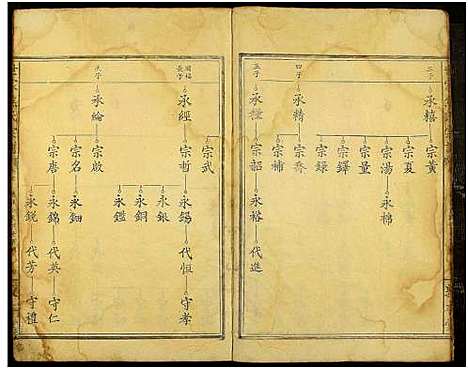 三子
承穡
宗黃
宗夏
宗湯
永棉
宗量
宗鐸
宗錄
四子
承精
宗喬
宗補
五子
承種
宗韶
永裕
代進
長子
承經
宗武
宗哲
永錫
代恒
守孝
永銀
永銅
永鑑
次子
承綸
宗啟
宗名
永鈿
永錦
代英
守仁
宗唐
永銳
代芳
守禮